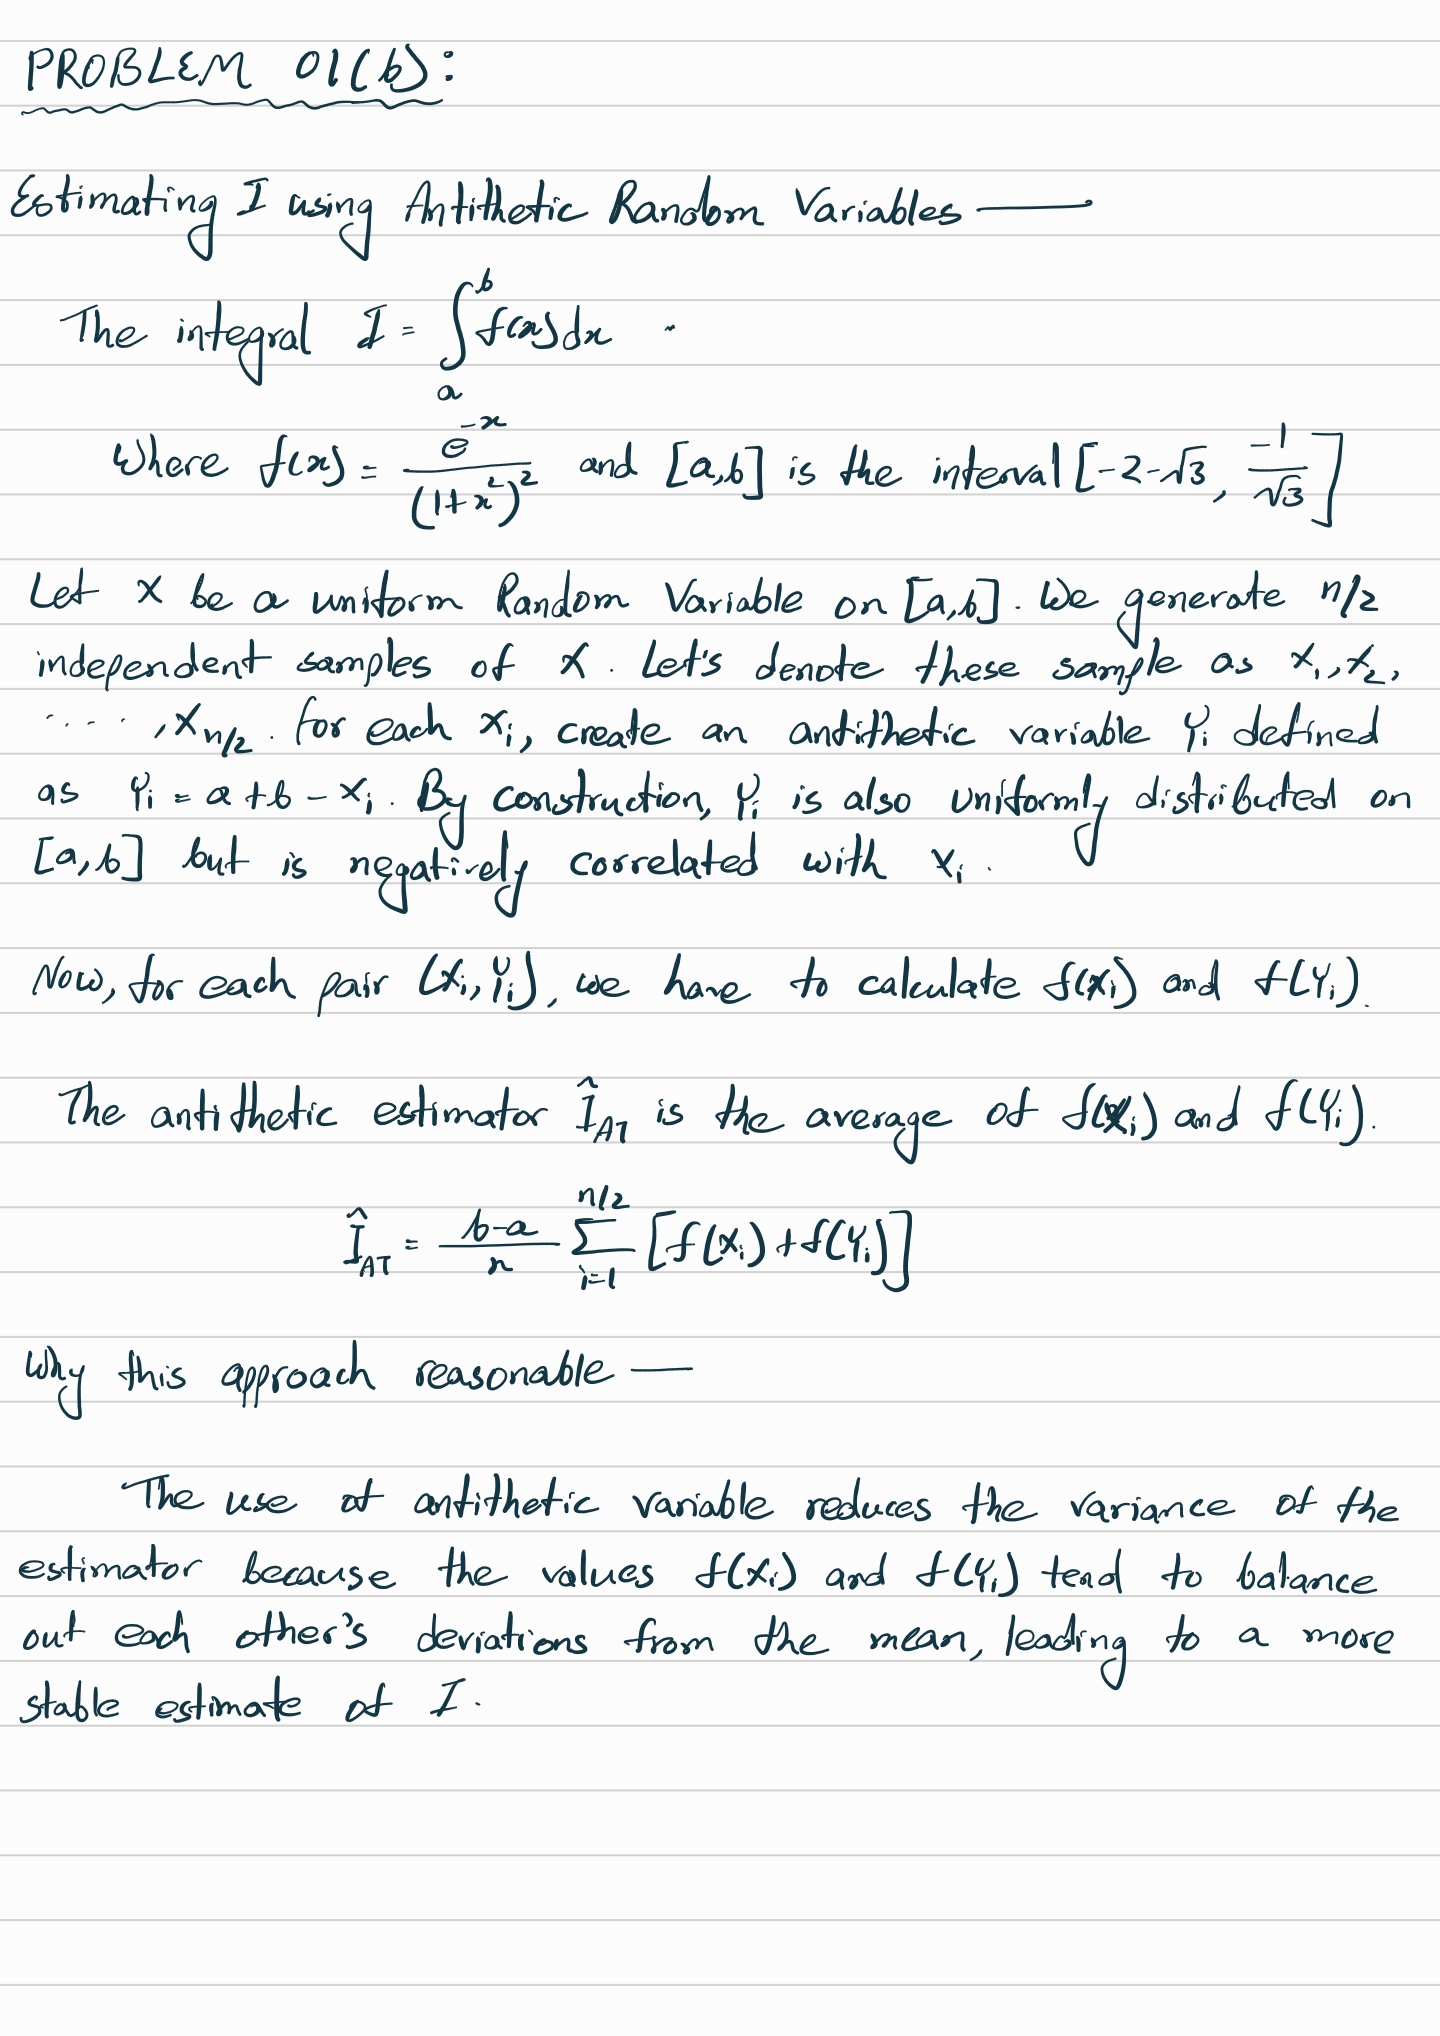 PROBLEM 01(b):
Estimating I using Antithetic Random Variables —
The integral I = ∫_a^b f(x)dx -
Where f(x) = e^{-x} / (1+x²)² and [a,b] is the interval [-2-√3, -1/√3]
Let X be a uniform Random Variable on [a,b]. We generate n/2
independent samples of X. Let's denote these sample as X₁, X₂,
....., X_{n/2}. For each X_i, create an antithetic variable Y_i defined
as Y_i = a+b-X_i. By construction, Y_i is also uniformly distributed on
[a,b] but is negatively correlated with X_i.
Now, for each pair (X_i, Y_i), we have to calculate f(X_i) and f(Y_i).
The antithetic estimator Î_{AT} is the average of f(X_i) and f(Y_i).
Î_{AT} = (b-a)/n ∑_{i=1}^{n/2} [f(X_i)+f(Y_i)]
Why this approach reasonable —
The use of antithetic variable reduces the variance of the
estimator because the values f(X_i) and f(Y_i) tend to balance
out each other's deviations from the mean, leading to a more
stable estimate of I.